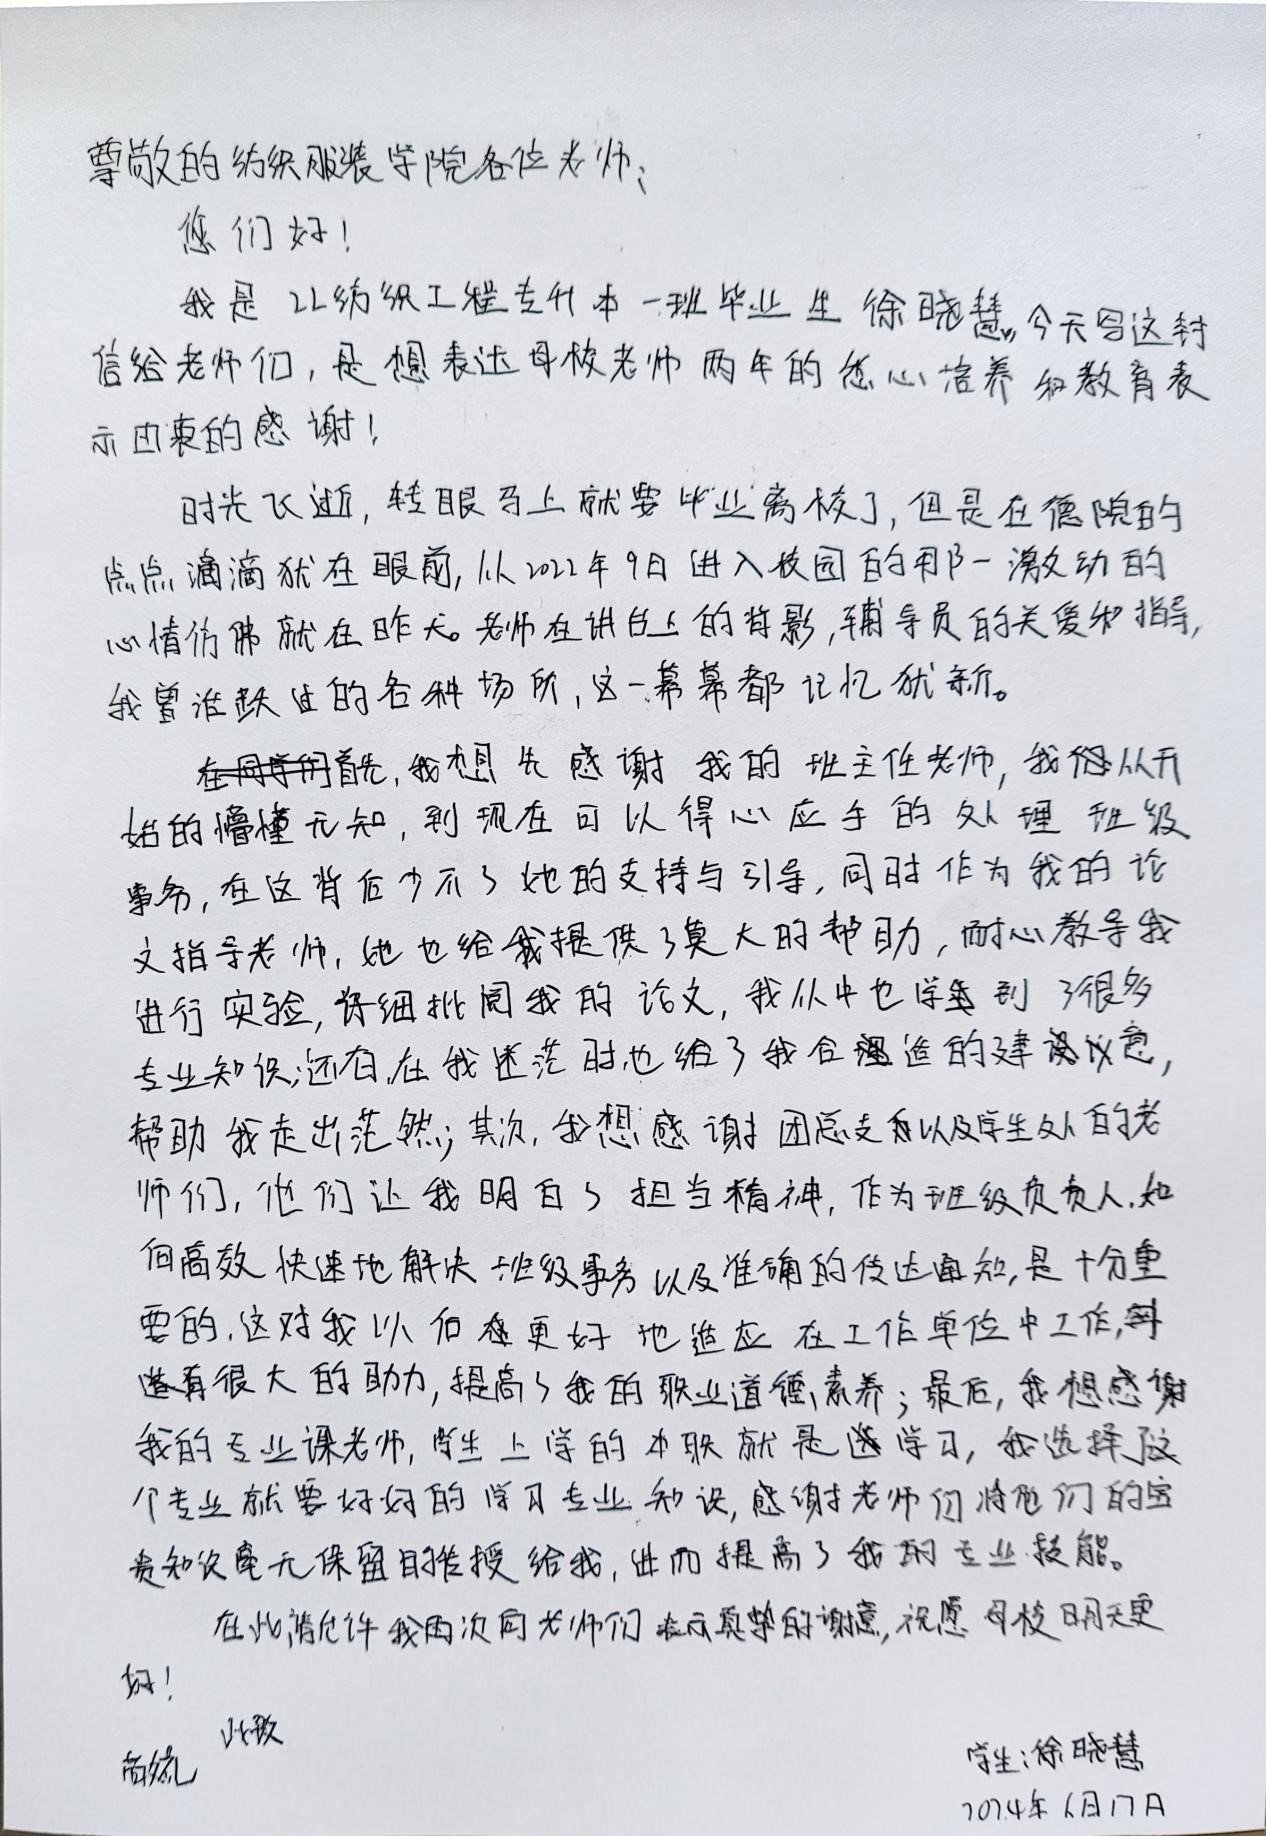 尊敬的纺织服装学院各位老师：
您们好！
我是22纺织工程专升本一班毕业生徐晓慧，今天写这封
信给老师们，是想表达母校老师两年的悉心培养和教育表
示由衷的感谢！
时光飞逝，转眼马上就要毕业离校了，但是在德院的
点点滴滴犹在眼前，从2022年9日进入校园的那一激动的
心情仿佛就在昨天。老师在讲台上的背影，辅导员的关爱和指导，
我曾谁跃过的各种场所，这一幕幕都记忆犹新。
在同学们首先，我想先感谢我的班主任老师，我从开
始的懵懂无知，到现在可以得心应手的处理班级
事务，在这背后少不了她的支持与引导，同时作为我的论
文指导老师，她也给我提供了莫大的帮助，耐心教导我
进行实验，仔细批阅我的论文，我从中也学到了很多
专业知识；还有，在我迷茫时也给了我合适的建议意，
帮助我走出茫然；其次，我想感谢团总支和以及学生处的老
师们，他们让我明白了担当精神，作为班级负责人，如
何高效快速地解决班级事务以及准确的传达通知，是十分重
要的，这对我以后在更好地适应在工作单位中工作，
有很大的助力，提高了我的职业道德素养；最后，我想感谢
我的专业课老师，学生上学的本职就是学习，我选择了这
个专业就要好好的学习专业知识，感谢老师们将他们的宝
贵知识毫无保留的传授给我，进而提高了我的专业技能。
在此请允许我再次向老师们表示真挚的谢意，祝愿母校明天更
好！
此致
敬礼
学生：徐晓慧
2024年6月17日